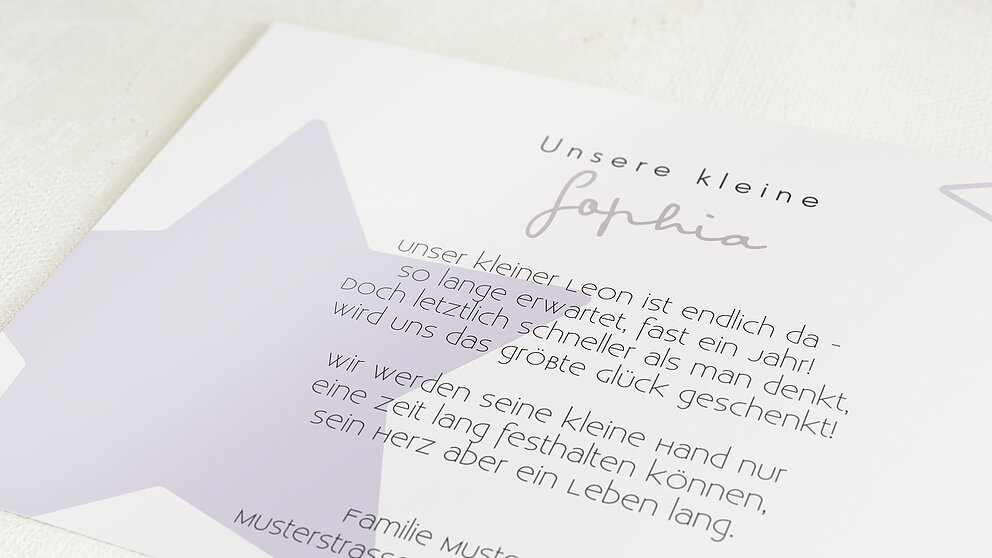 Unsere kleine
Sophia
unser kleiner Leon ist endlich da -
so lange erwartet, fast ein Jahr!
Doch letztlich schneller als man denkt,
wird uns das größte Glück geschenkt!
Wir werden seine kleine Hand nur
eine Zeit lang festhalten können,
sein Herz aber ein Leben lang.
Familie